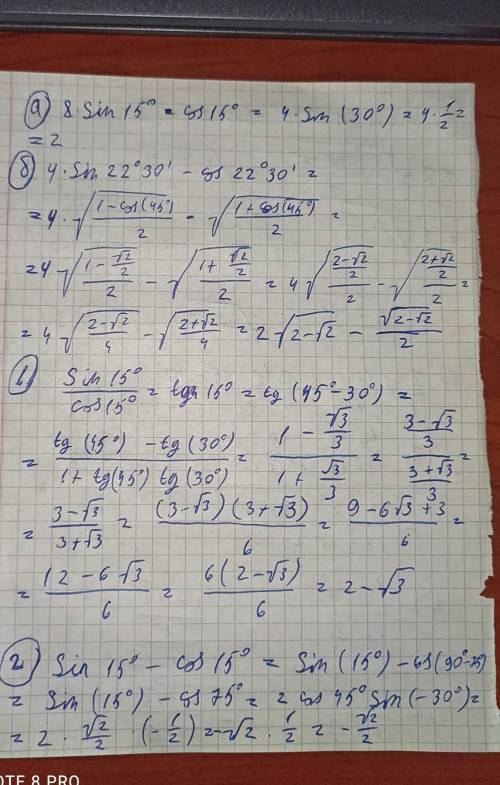 а) 8·Sin 15° - cos 15° = 4·Sin (30°) = 4·1/2 =
= 2
б) 4·Sin 22°30' - cos 22°30' =
= 4·√((1-cos(45°))/2) - √((1+cos(45°))/2) =
= 4√((1-√2/2)/2) - √((1+√2/2)/2) = 4√(((2-√2)/2)/2) - √(((2+√2)/2)/2) =
= 4√((2-√2)/4) - √((2+√2)/4) = 2√(2-√2) - √(2-√2)/2
в)
Sin 15°/cos 15° = tg 15° = tg (45°-30°) =
= (tg (45°) - tg (30°))/(1 + tg(45°) tg(30°)) = (1 - √3/3)/(1 + √3/3) = ((3-√3)/3)/((3+√3)/3) =
= (3-√3)/(3+√3) = (3-√3)(3+√3)/6 = (9-6√3+3)/6 =
= (12-6√3)/6 = 6(2-√3)/6 = 2-√3
г) Sin 15° - cos 15° = Sin (15°) - cos(90°-15)
= Sin (15°) - cos 75° = 2 cos 45° Sin (-30°) =
= 2·√2/2·(-1/2) = -√2·1/2 = -√2/2
OTE 8 PRO